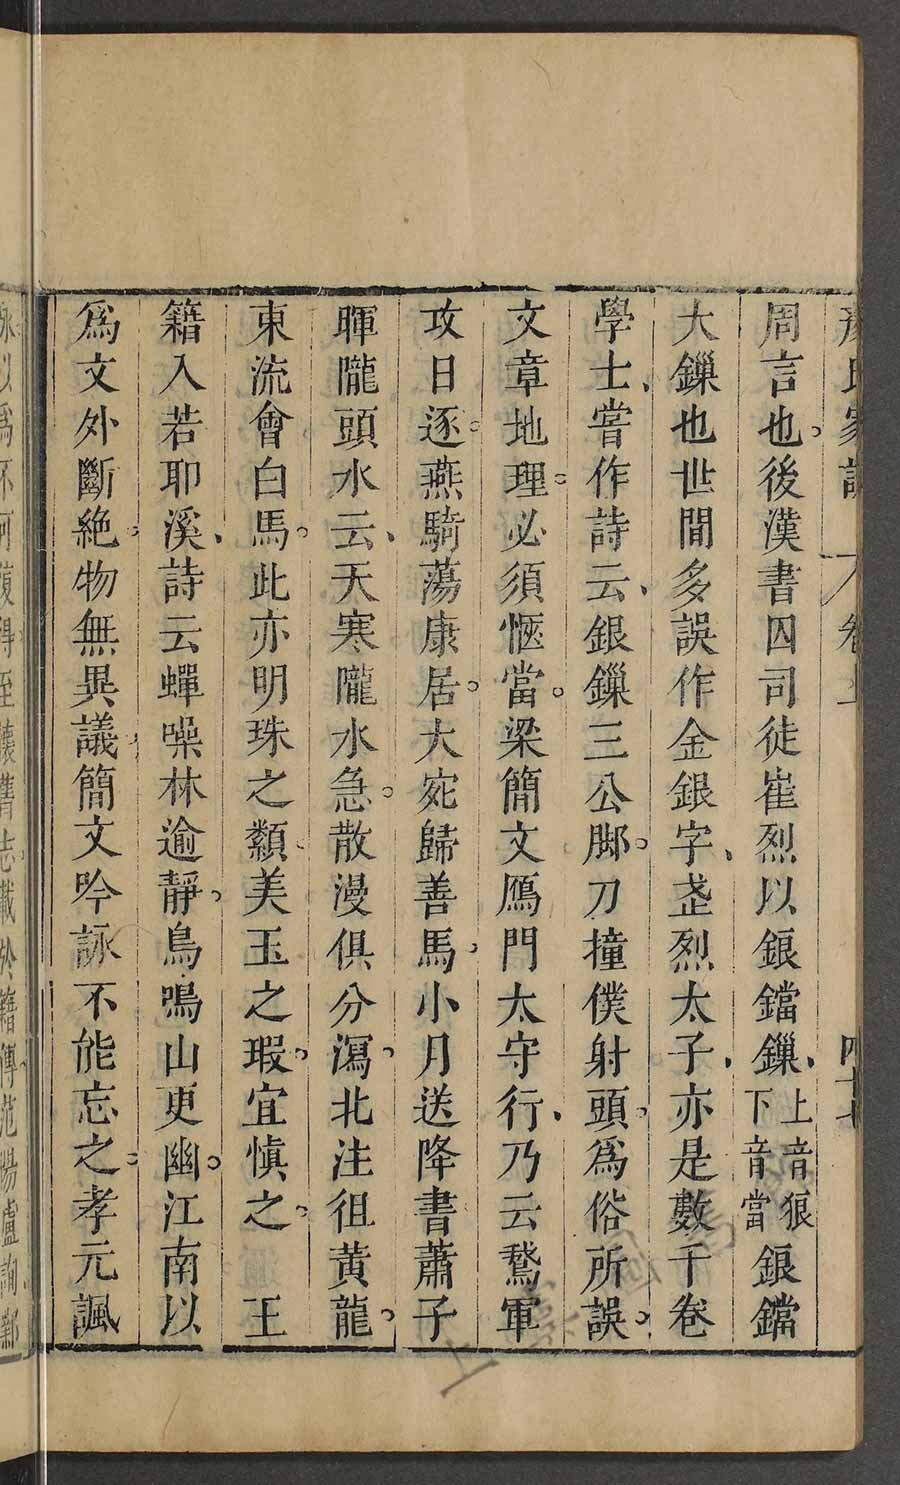 顏氏家訓 卷上 四十七
周言也後漢書囚司徒崔烈以鋃鐺鏁上音狼下音當鋃鐺
大鏁也世間多誤作金銀字武烈太子亦是數千卷
學士嘗作詩云銀鏁三公脚刀撞僕射頭爲俗所誤
文章地理必須愜當梁簡文鴈門太守行乃云鵞軍
攻日逐燕騎蕩康居大宛歸善馬小月送降書蕭子
暉隴頭水云天寒隴水急散漫俱分瀉北注徂黃龍
東流會白馬此亦明珠之纇美玉之瑕宜慎之 王
籍入若耶溪詩云蟬噪林逾靜鳥鳴山更幽江南以
爲文外斷絶物無異議簡文吟詠不能忘之孝元諷